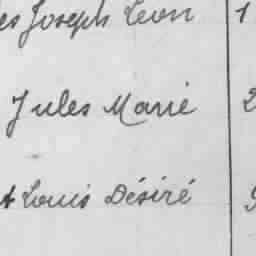 es Joseph Leon 1
Jules Marie 2
t Louis Désiré